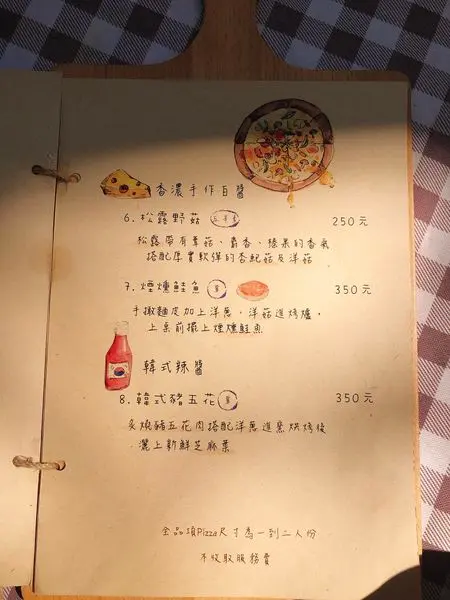 香濃手作白醬
6. 松露野菇 250元
松露帶有蕈菇、麝香、榛果的香氣
搭配厚實軟彈的杏鮑菇及洋菇
7. 煙燻鮭魚 350元
手撖麵皮加上洋蔥、洋菇進烤爐,
上桌前擺上煙燻鮭魚
韓式辣醬
8. 韓式豬五花 350元
炙燒豬五花肉搭配洋蔥進窯烘烤後
灑上新鮮芝麻葉
全品項Pizza尺寸為一到二人份
不收取服務費